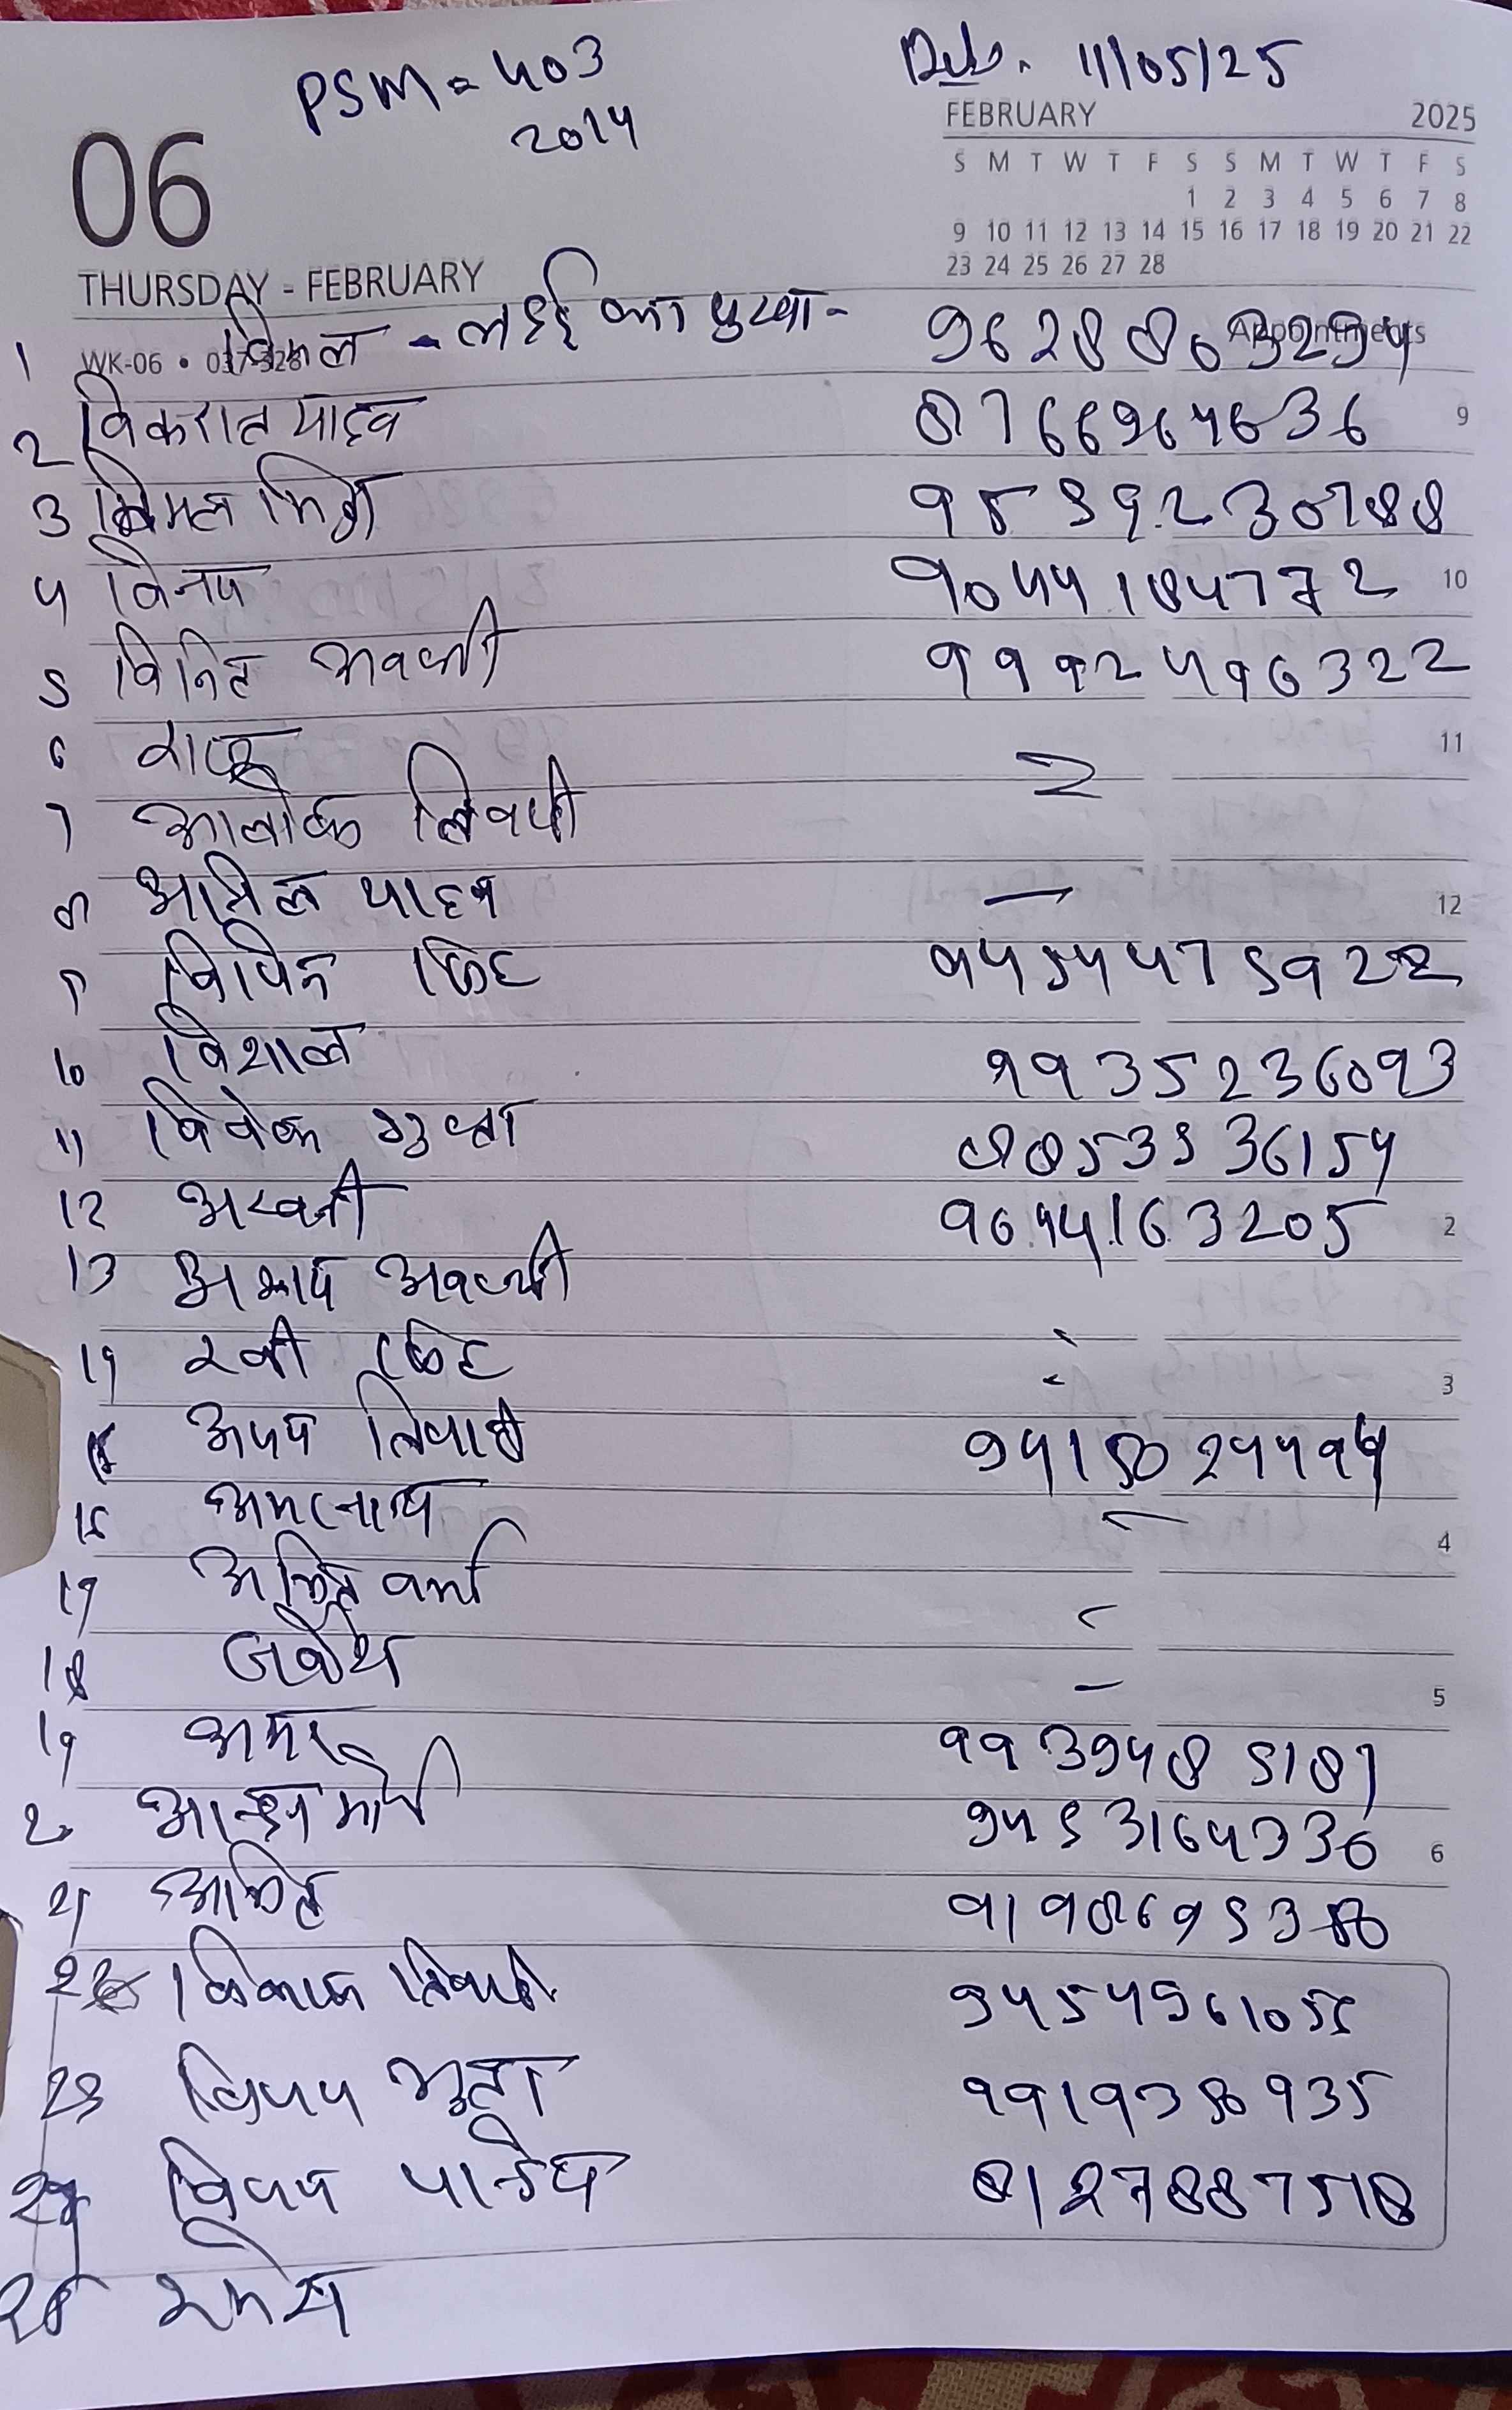 PSM = 403 Dt. 11/05/25
2014
FEBRUARY 2025
S M T W T F S S M T W T F S
1 2 3 4 5 6 7 8
9 10 11 12 13 14 15 16 17 18 19 20 21 22
23 24 25 26 27 28
06
THURSDAY - FEBRUARY
WK-06 • 037-328 Appointments
1 विमल - का पुरवा - 9628863294
2 विकरात यादव 8766964636 9
3 विमल 9559230788
4 विनय 9044184772 10
5 विनित अवस्थी 9992496322
6 11
7 आलोक त्रिवेदी
8 यादव 12
9 विपिन सिंह 9454475922
10 विशाल 9935236093
11 विवेक गुप्ता 8853536154
12 अश्वनी 9644163205 2
13 अभय अवस्थी
14 रवी सिंह 3
15 अजय तिवारी 9415024494
16 अमरनाथ 4
17 अमित वर्मा
18 5
19 अमर 9939485187
20 मौर्य 9453164336 6
21 अमित
22 विकास तिवारी 9454961055
23 विजय गुप्ता 9919350935
24 विजय पान्डेय 8127887518
25 रमेश